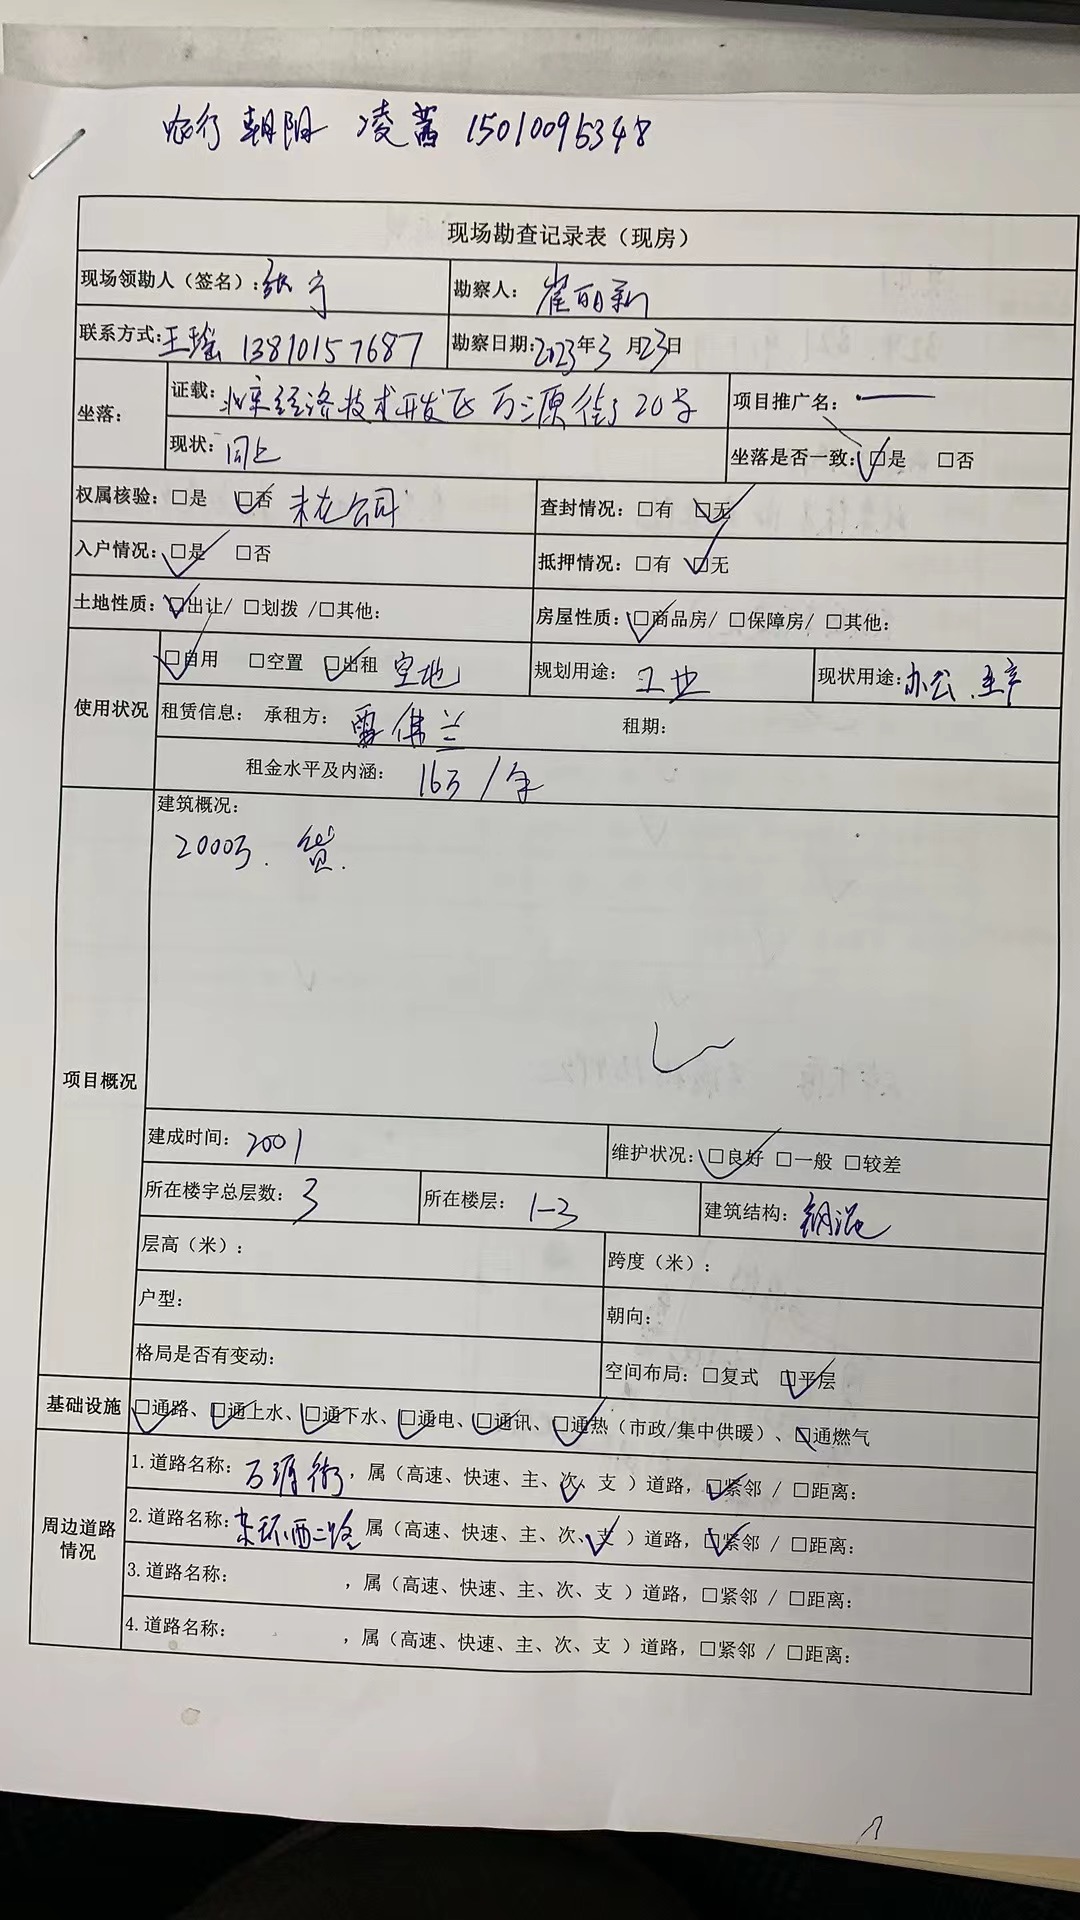 农行 朝阳 凌茜 15010095348
现场勘查记录表（现房）
现场领勘人（签名）：张宁 勘察人： 崔丽新
联系方式：王瑶 13810157687 勘察日期：2023年3月23日
坐落： 证载：北京经济技术开发区万源街20号 项目推广名：——
现状：同上 坐落是否一致：☑是 □否
权属核验：□是 ☑否 未在公司 查封情况：□有 ☑无
入户情况：☑是 □否 抵押情况：□有 ☑无
土地性质：☑出让/ □划拨 /□其他： 房屋性质：☑商品房/ □保障房/ □其他：
使用状况 ☑自用 □空置 ☑出租 空地 规划用途： 工业 现状用途：办公、生产
租赁信息： 承租方： 雷伟兰 租期：
租金水平及内涵： 16万/年
项目概况 建筑概况：
2000万.
建成时间： 2001 维护状况：☑良好 □一般 □较差
所在楼宇总层数： 3 所在楼层： 1-3 建筑结构：钢混
层高（米）： 跨度（米）：
户型： 朝向：
格局是否有变动： 空间布局：□复式 ☑平层
基础设施 ☑通路、☑通上水、☑通下水、☑通电、☑通讯、☑通热（市政/集中供暖）、☑通燃气
周边道路情况 1.道路名称： 万源街 ，属（高速、快速、主、次、支 ）道路，☑紧邻 / □距离：
2.道路名称：东环西二路 属（高速、快速、主、次、支 ）道路，☑紧邻 / □距离：
3.道路名称： ，属（高速、快速、主、次、支 ）道路，□紧邻 / □距离：
4.道路名称： ，属（高速、快速、主、次、支 ）道路，□紧邻 / □距离：